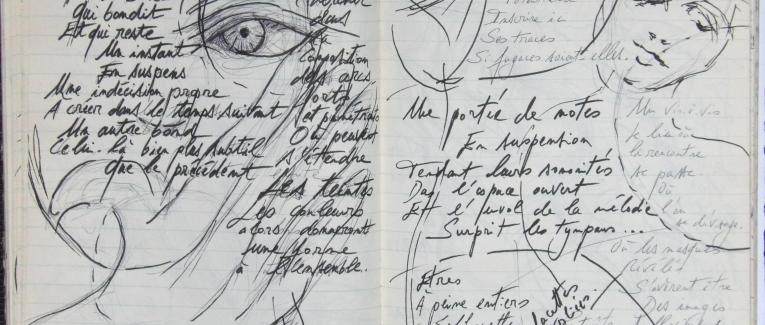 Qui bondit
Et qui reste
Un instant
En suspens
Une indécision propre
A créer dans le temps suivant
Un autre bond
Celui-là bien plus subtil
Que le précédent
dans
la
composition
des arcs
forts
et pénétrants
Qui peuvent
s'étendre
Les teintes
Les couleurs
alors donneront
une forme
à l'ensemble.
Inscrire ici
Ses traces
Si fugaces soient-elles.
Une portée de notes
En suspention
Tendant leurs sonorités
Dans l'espace ouvert
Et l'envol de la mélodie
Surprit les tympans...
Êtres
À peine entiers
Silhouettes
Un vis à vis
la rencontre
se passe
Où
l'on
se dévisage.
Où les masques
S'avèrent être
Des images